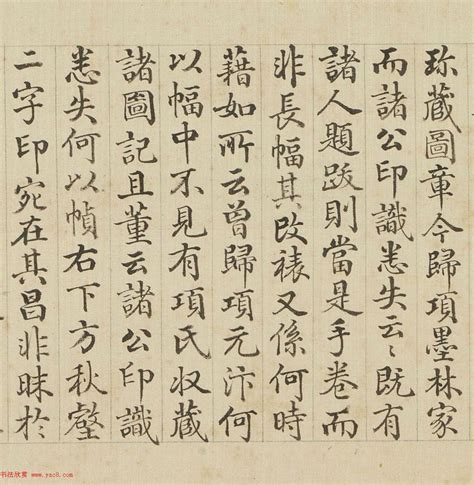 珎蔵圖章今歸項墨林家
而諸公印識悉失云〻既有
諸人題跋則當是手卷而
非長幅其改裱又係何時
藉如所云曾歸項元汴何
以幅中不見有項氏収蔵
諸圖記且董云諸公印識
悉失何以幀右下方秋壑
二字印宛在其昌非昧於
书法欣赏 www.yac8.com